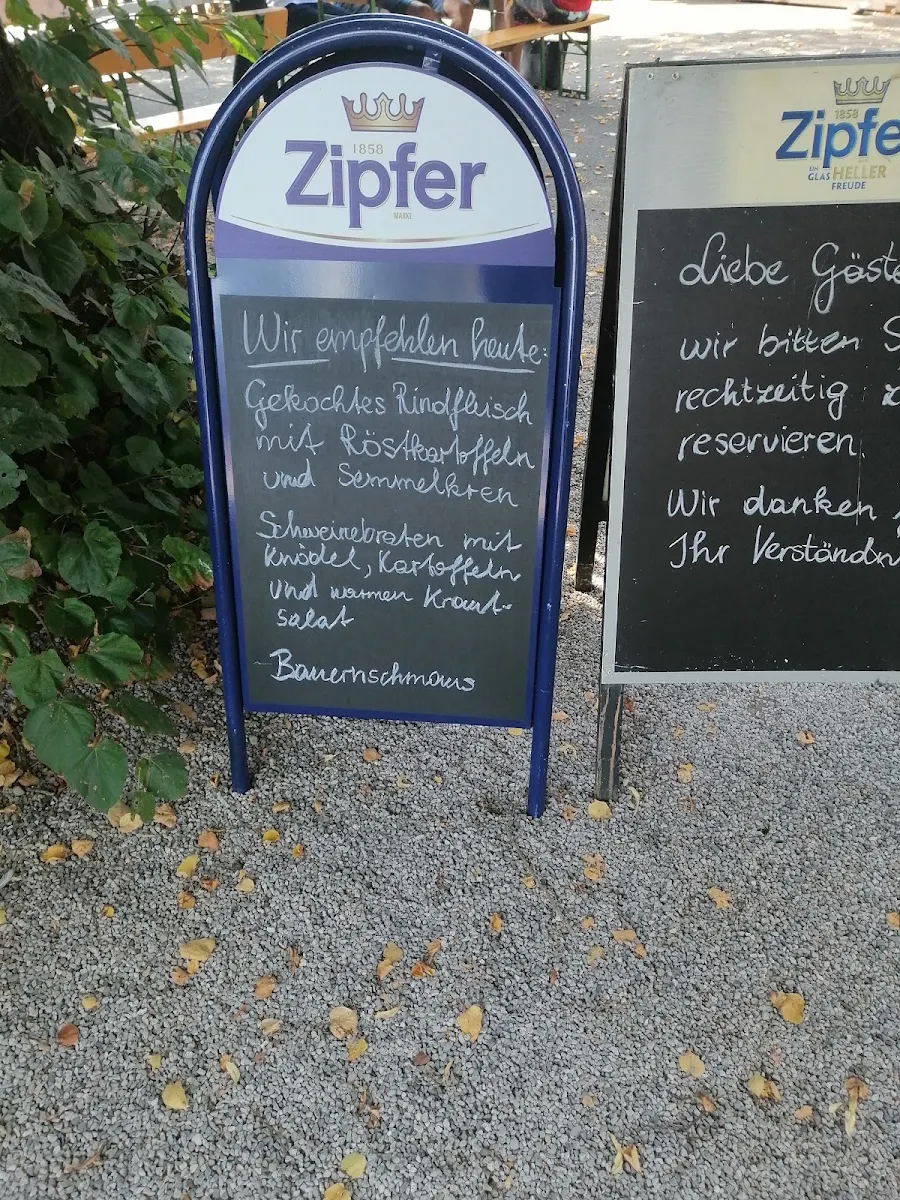 1858
Zipfer
MARKE
Wir empfehlen heute:
Gekochtes Rindfleisch
mit Röstkartoffeln
und Semmelkren
Schweinebraten mit
Knödel, Kartoffeln
und warmen Kraut-
salat
Bauernschmaus
1858
Zipfe
EIN
GLAS HELLER
FREUDE
Liebe Gäste
wir bitten S
rechtzeitig z
reservieren.
Wir danken
Ihr Verständn